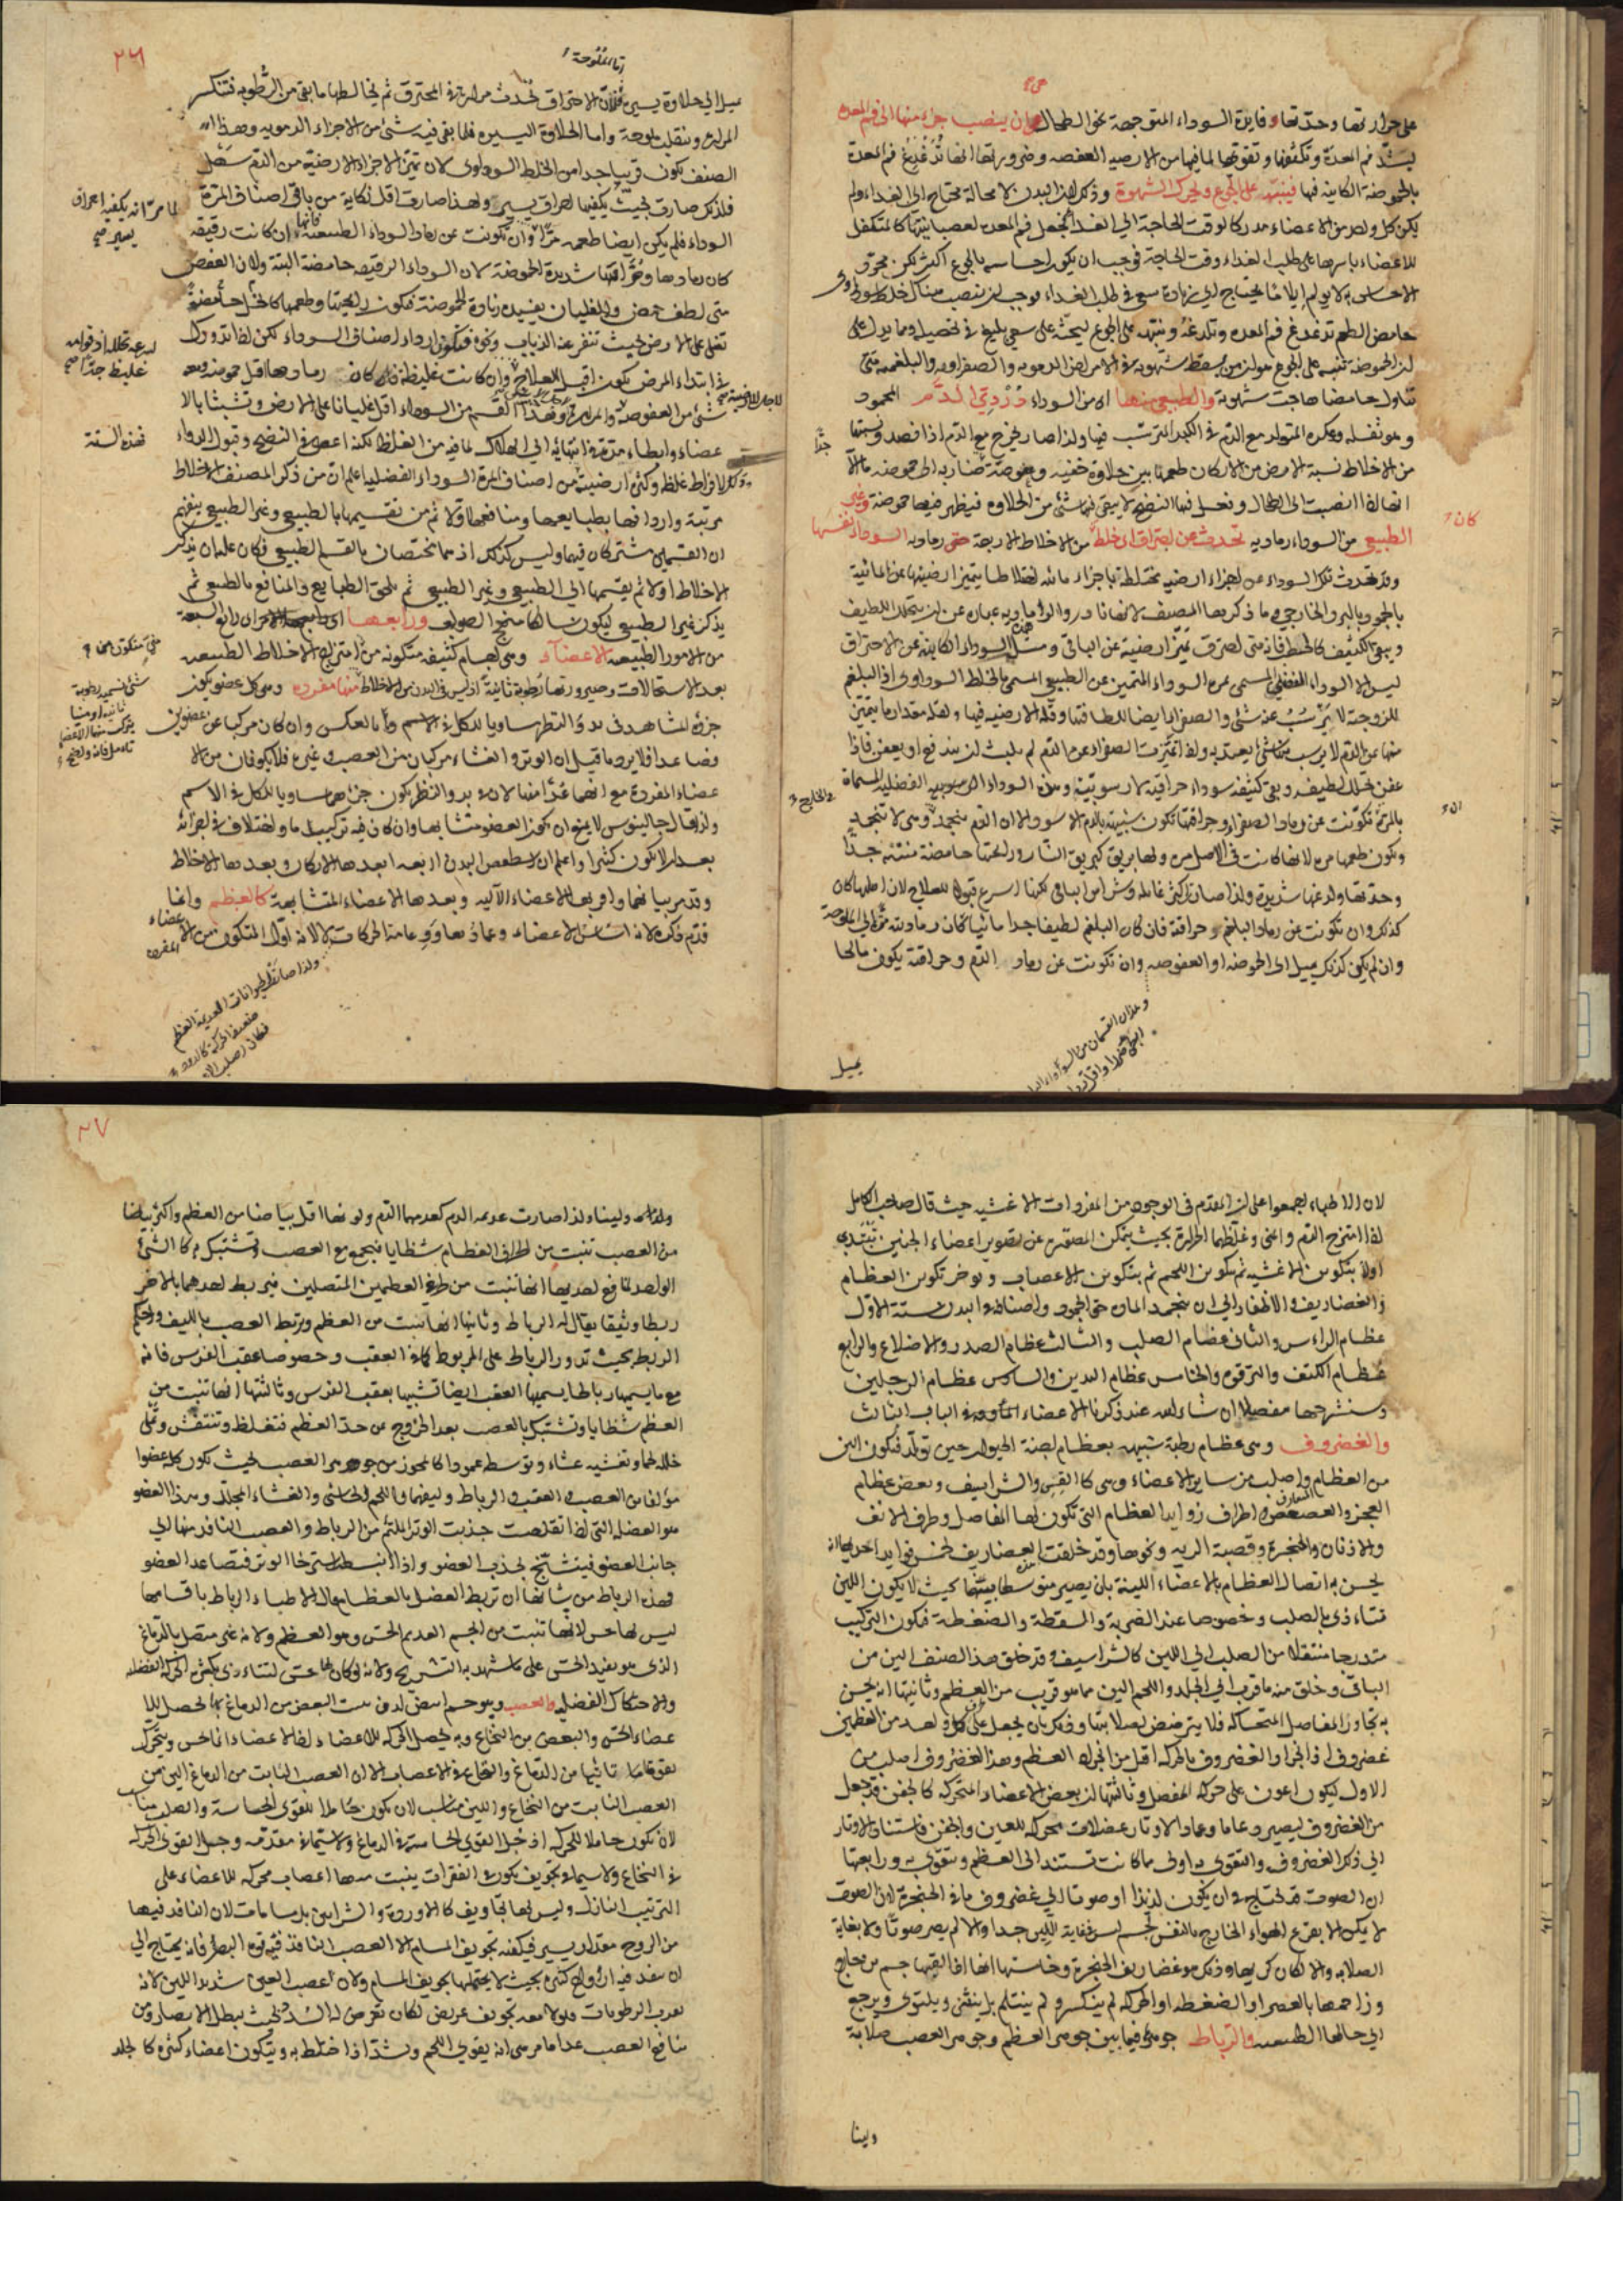 على حرارتها وحدتها وفايدة السوداء المتوجهة نحو الطحال هي ان ينصب جزء منها الى فم المعدة
ليشد فم المعدة وتكثفها وتقويها لما فيها من الارضية العفصة وضرورتها انها تدغدغ فم المعدة
بالحموضة الكاينة فيها فينبه على الجوع ويحرك الشهوة وذلك لان البدن لا محالة محتاج الى الغداء ولم
يكن كل واحد من الاعضاء مدركا لوقت الحاجة الى الغداء فجعل فم المعدة لعصبانيتها كالمتكفل
للاعضاء باسرها على طلب الغداء وقت الحاجة فوجب ان يكون احساسه بالجوع اكثر لكن مجرد
الاحساس لا يولم ايلاما يحتاج الى زيادة سعى في طلب الغداء فوجب ان ينصب هناك خلط سوداوى
حامض الطعم تدغدغ فم المعدة وتلدغه وتنبه على الجوع ليحثه على سعى بليغ في تحصيله ومما يدل على
ان الحموضة تنبه على الجوع هو ان من يسقط شهوته في الامراض الدموية والصفراوية والبلغمية متى
تناول حامضا هاجت شهوته والطبيعى منها اى من السوداء دردى الدم المحمود
وهو ثفله وعكره المتولد مع الدم في الكبد المترسب فيها ولذا صار يخرج مع الدم اذا فصد ونسبتها
جدا
من الاخلاط نسبة الارض من الاركان طعمها بين حلاوة خفيه وعفوصة ضاربه الى حموضة ما الا
انها اذا انصبت الى الطحال وتعمل فيها النضج لا يبقى فيها شئ من الحلاوة فيظهر فيها حموضة وغير
كان
الطبيعى من السوداء رمادية تحدث من احتراق اى خلط من الاخلاط الاربعة حتى رمادية السوداء نفسها
وقد تحدث تلك السوداء عن اجزاء ارضيه مختلطة باجزاء مائية اختلاطا يتميز ارضيتها عن المائية
بالجمود بالبرد الخارجى وما ذكرها المصنف لانها نادرة والرمادية عبارة عن ان يتحلل اللطيف
ويبقى الكثيف كالحطب فانه متى احترق تميز ارضيته عن الباقى ومثل السوداء الكاينة عن الاحتراق
ليس الا السوداء الفضلى المسمى بمرة السوداء المتميز عن الطبيعى المسمى بالخلط السوداوى اذ البلغم
للزوجته لا يرسب عنه شئ والصفراء ايضا للطافتها وقلة الارضيه فيها ولقلة مقدار ما يتميز
منها عن الدم لا يرسب منها شئ يعتد به ولذا تميزت الصفراء عن الدم لم يلبث ان يندفع او يعفن فاذا
عفن تحلل لطيفه وبقى كثيفه سوداء حراقية لا رسوبية وهذه السوداء الرمادية الفضلية المسماة
بالمرة تكونت عن رماد الصفراء وحراقتها تكون شبيهة بالدم الاسود الا ان الدم ينجمد وهى لا تنجمد
ويكون طعمها مره لانها كانت في الاصل مره ولها بريق كبريق النار ورايحتها حامضة منتنة جدا
وحدتها ولدغها شديدة ولذا صارت اكثر غائلة وشر امن الباقى لكنها اسرع قبولا للعلاج لان اصلها كان
كذلك وان تكونت عن رماد البلغم وحراقته فان كان البلغم لطيفا جدا مائيا كان رماديته الى الملوحة
وان لم يكن كذلك يميل الى الحموضة او العفوصة وان تكونت عن رماد الدم وحراقته يكون مالحا
يميل
٢٦
اما الملوحة
ميل الى حلاوة يسيره فلان الاحتراق يحدث مرارة في المحترق ثم يخالطها ما بقى من الرطوبة فتنكسر
المرارة وتنقلب ملوحة واما الحلاوة اليسيره فلما بقى فيه شئ من الاجزاء الدموية وهذا
الصنف يكون قريبا جدا من الخلط السوداوى لان تميز الاجزاء الارضية من الدم سهل
فلذلك صارت بحيث يكفيها احراق يسير ولهذا صارت اقل نكاية من باقى اصناف المرة
لما مر انه يكفيه احراق يسير صح
السوداء فلم يكن ايضا طعمه مرا وان تكونت عن رماد السوداء الطبيعية فانها ان كانت رقيقة
كان رمادها وحراقتها شديدة الحموضة لان السوداء الرقيقة حامضة البتة ولان العفص
متى لطف حمض والغليان يفيده زيادة الحموضة فيكون رايحتها وطعمها كالخل حامضة
تغلى على الارض بحيث تنفر عنه الذباب ونحوه فيكون ارداء اصناف السوداء لكن اذا تدورك
لسرعة تحلله اذ قوامه غليظ جدا صح
في ابتداء المرض يكون اقبل للعلاج وان كانت غليظة فان كان رمادها اقل حموضة ومعه
شئ من العفوصة والمرارة وهذا القسم من السوداء اقل غليانا على الارض وتشبثا بالا
عضاء وابطاء مدة في انتهائه الى الهلاك لما فيه من الغلظ لكنه اعصى في النضج وقبول الدواء
فهذه الستة
وذلك لافراط غلظه وكثرة ارضيته من اصناف المرة السوداء الفضلية اعلم ان من ذكر المصنف الاخلاط
مرتبة وارداف بطبايعها ومنافعها اولا ثم من تقسيمها بالطبيعى وغير الطبيعى يفهم
ان القسمين مشتركان فيها وليس كذلك اذ هما مختصان بالقسم الطبيعى فكان عليه ان يذكر
الاخلاط اولا ثم يقسمها الى الطبيعى وغير الطبيعى ثم يلحق الطبايع والمنافع بالطبيعى ثم
يذكر غير الطبيعى ليكون سالكا منهج الصواب ورابعها اى رابع الامور السبعة
من الامور الطبيعيه الاعضاء وهى اجسام كثيفه متكونه من امتزاج الاخلاط الطبيعيه
بعد الاستحالات وصيرورتها رطوبة ثانية اذ ليس في البدن من الاخلاط منها مفردة وهى كل عضو يكون
جزؤه المشاهد في بدو النظر مساويا للكل في الاسم واما بالعكس وان كان مركبا من عضوين
فصاعدا فلا يرد ما قيل ان الوتر والغشاء مركبان من العصب وغيره فلا يكونان من الا
عضاء المفردة مع انهما عدا منها لان في بدو النظر يكون جزؤهما مساويا للكل في الاسم
ولذا قال جالينوس لا يمنع ان يكون العضو متشابها وان كان فيه تركيب ما واختلاف في اجزائه
بعد ان لا يكون كثيرا واعلم ان اسطقس البدن اربعة ابعدها الاركان وبعدها الاخلاط
وقد مر بيانهما واقربها الاعضاء الآلية وبعدها الاعضاء المتشابهة كالعظم وانما
قدم ذكره لانه اساس الاعضاء وعمادها ودعامة الحركات لا لانه اول المتكون من الاعضاء المفردة
ولذا صارت الحيوانات العديمة العظم
ضعيفة الحركة كالدود
لان الاطباء اجمعوا على ان المقدم في الوجود من المفردات الاغشية حيث قال صاحب الكامل
اذا امتزج الدم والمنى وغلظهما الحرارة بحيث يتمكن المصورة عن تصوير اعضاء الجنين تبتدى
اولا بتكوين الاغشية ثم بتكوين اللحم ثم بتكوين الاعصاب ويوخر تكوين العظام
والغضاريف والاظفار الى ان ينجمد المادة حق الجمود واصنافه في البدن ستة الاول
عظام الراس والثانى عظام الصلب والثالث عظام الصدر والاضلاع والرابع
عظام الكتف والترقوة والخامس عظام اليدين والسادس عظام الرجلين
وسنشرحها مفصلا ان شاء الله عند ذكرنا الاعضاء الماووفة في الباب الثالث
والغضروف وهى عظام رطبة شبيهه بعظام اجنة الحيوان حين تولد فيكون الين
من العظام واصلب من ساير الاعضاء وهى كالقس والشراسيف وبعض عظام
العجز والعصعص واطراف زوايد العظام التى تكون لها المفاصل وطرف الانف
والاذنان والحنجرة وقصبة الرية ونحوها وقد خلقت الغضاريف لخمس فوايد احديها انه
يحسن به اتصال العظام بالاعضاء اللينة بان يصير متوسطا بينهما بحيث لا يكون اللين
تتاءذى بالصلب وخصوصا عند الضربة والسقطة والضغطة فيكون التركيب
متدرجا منتقلا من الصلب الى اللين كالشراسيف وقد خلق هذا الصنف الين من
الباقى وخلق منه ما قرب الى الجلد واللحم الين مما هو قريب من العظم وثانيتها انه يحسن
به تجاور المفاصل المتحاكة فلا يترضض لصلابتها وذلك بان يجعل على طرف كل واحد من العظمين
غضروف اذ انجرار الغضروف بالحركة اقل من انجرار العظم وهذا الغضروف اصلب من
الاول ليكون اعون على حركة المفصل وثالثتها ان بعض الاعضاء المتحركة كالجفن قد جعل
من الغضروف ليصير دعاما وعمادا لاوتار عضلات محركة للعين والجفن فاستناد الاوتار
الى ذلك الغضروف والتقوى به اولى مما كانت تستند الى العظم وتتقوى به ورابعتها
ان الصوت قد يحتاج في ان يكون لذيذا او صوتا الى غضروف ما في الحنجرة لان الصوت
لا يكن الا بقرع الهواء الخارج بالنفس لجسم ليس في غاية اللين جدا والا لم يصر صوتا ولا بغاية
الصلابة والا لكان كريها وذلك هو غضاريف الحنجرة وخامستها انها اذا لقيها جسم من خارج
وزاحمها بالعصر او الضغطة او الحركة لم ينكسر ولم ينثلم بل ينثنى ويلتوى ويرجع
الى حالها الطبيعيه والرباط جوهره فيما بين جوهر العظم وجوهر العصب صلابة
ولينا
٢٧
ولونا ولينا ولذا صارت عديمة الدم كعدمهما الدم ولونها اقل بياضا من العظم واكثر بياضا
من العصب تنبت من اطراف العظام شظايا فيجمع مع العصب وتشتبك به كالشئ
الواحد لمنافع احديها انها تنبت من طرفى العظمين المتصلين فيربط احدهما بالاخر
ربطا وثيقا يقال له الرباط وثانيها انها تنبت من العظم وتربط العصب بالليف واحكم
الربط بحيث تدور الرباط على المربوط كما في العقب وخصوصا عقب الفرس فانه
مع ما يسميها رباطا يسميها العقب ايضا تشبيها بعقب الفرس وثالثتها انها تنبت من
العظم شظايا وتشتبك بالعصب بعد الخروج عن حد العظم فتغلظ وتنتفش وتملى
خللها لحما وتغشيه غشاء وتوسطه عمودا كالمحوز من جوهر العصب بحيث يكون كله عضوا
مؤلفا من العصب والعقب والرباط وليفهما واللحم الحاشى والغشاء المجلل وهذا العضو
هو العضلة التى اذا تقلصت جذبت الوتر الملتئم من الرباط والعصب النافذ منها الى
جانب العضو فيتشنج يجذب العضو واذا انبسطت استرخا الوتر فتصاعد العضو
وهذه الرباط من شانها ان تربط العضل بالعظام قال الاطباء الرباط باقسامها
ليس لها حس لانها تنبت من الجسم العديم الحس وهو العظم ولانه غير متصل بالدماغ
الذى هو مفيد الحس على ما شهد به التشريح ولانه لو كان لها حس لتتاءذى بكثرة الحركة العضلية
والاحتكاك الفضلية والعصب وهو جسم ابيض لدن ينبت البعض من الدماغ به يحصل للا
عضاء الحس والبعض من النخاع وبه يحصل الحركة للاعضاء اذ الاعضاء انما تحس ويتحرك
بقوة ما تاتيها من الدماغ والنخاع في الاعصاب الا ان العصب النابت من الدماغ الين من
العصب النابت من النخاع واللين مناسب لان يكون حاملا للقوى الحساسة والصلب مناسب
لان يكون حاملا للحركة اذ جعل القوى الحاسة في الدماغ ولا سيما في مقدمه وجعل القوى الحركة
في النخاع ولا سيما في تجويف يكون في الفقرات ينبت منها اعصاب محركة للاعضاء على
الترتيب النازل وليس لها تجاويف كالاوردة والشرايين بل مسامات لان النافذ فيها
من الروح مقدار يسير فيكفيه تجويف المسام الا العصب النافذ فيه قوة البصر فانه يحتاج الى
ان ينفذ فيه ارواح كثيرة بحيث لا يحتملها تجويف المسام ولان عصب العين شديد اللين لانه
يقرب الرطوبات فلولا معه تجويف عريض لكان تعرض له السدد بحيث يبطل الابصار ومن
منافع العصب عدا ما مر هى انه يقوى اللحم ويشد اذا اختلط به ويتكون اعضاء كثيرة كالجلد